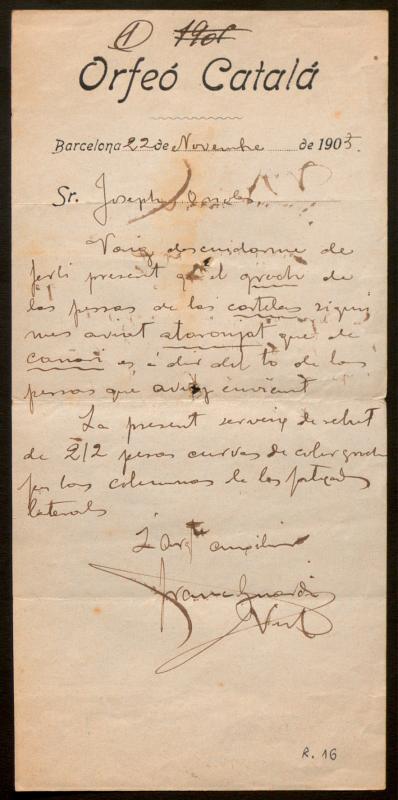 1 1901
Orfeó Catalá
Barcelona 22 de Novembre de 1905
Sr. Joseph
Vaig descuidarme de
ferli present que'l groch de
las pessas de las cartelas sigui
mes aviat ataronjat que de
canari es á dir del to de las
pessas que avuy enviem
La present serveix de rebut
de 212 pesas curvas de color groch
per las columnas de las fatxadas
laterals
L'arqte auxiliar
Franc Guardia
Vial
R. 16